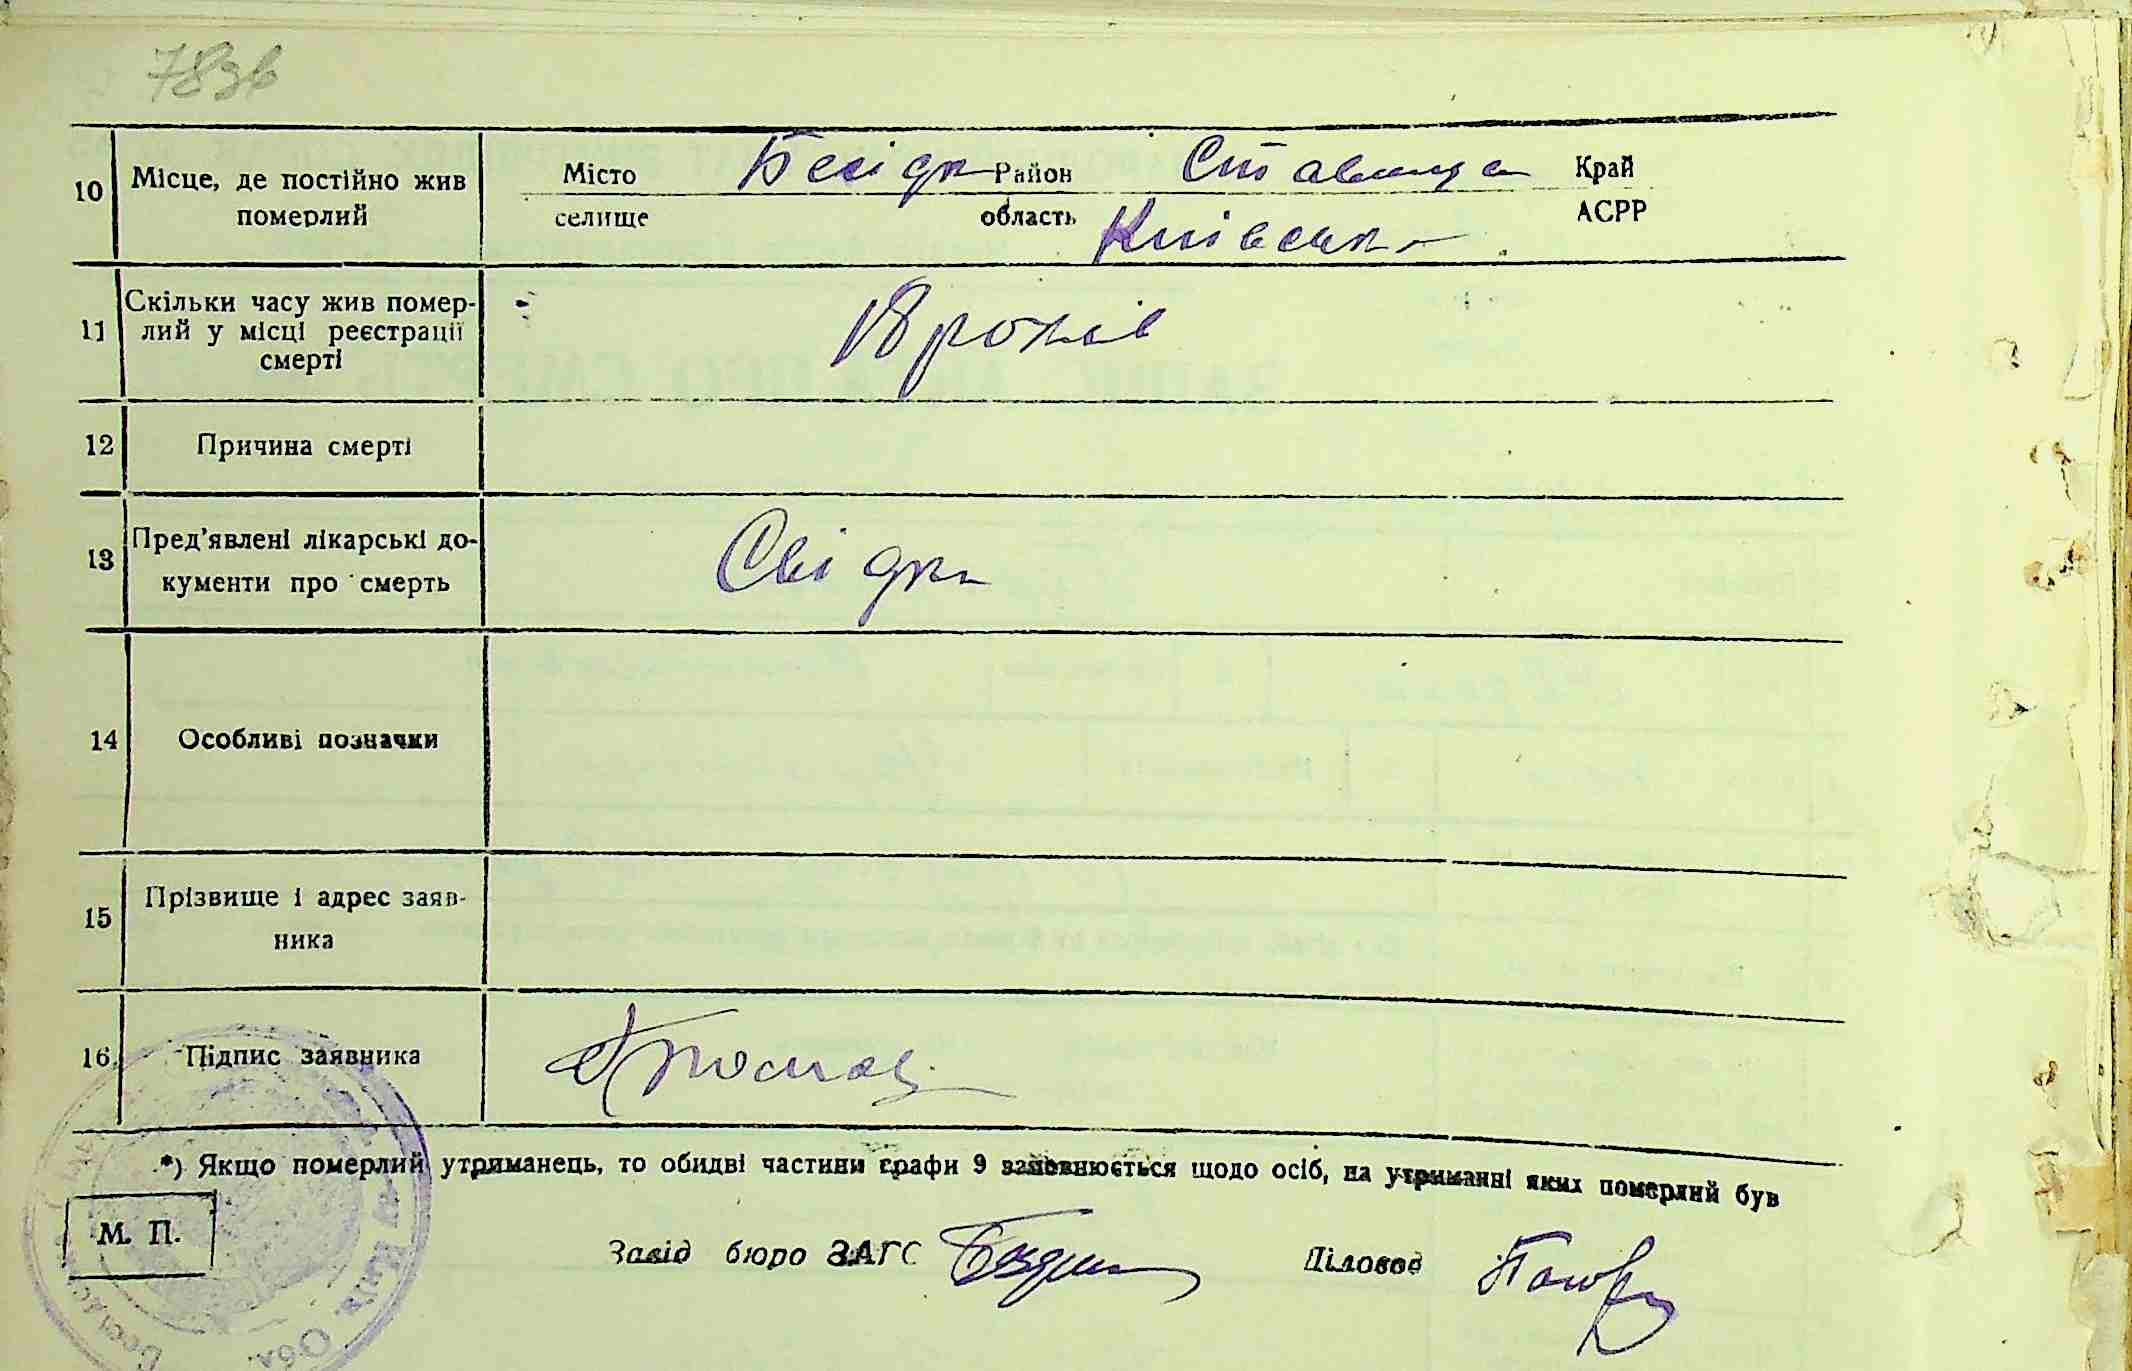 783в
10 Місце, де постійно жив померлий Місто Бесідка Район Ставище Край
селище область Київська АСРР
11 Скільки часу жив помер-
лий у місці реєстрації
смерті 18 років
12 Причина смерті
13 Пред'явлені лікарські до-
кументи про смерть Свідки
14 Особливі позначки
15 Прізвище і адрес заяв-
ника
16. Підпис заявника
*) Якщо померлий утриманець, то обидві частини графи 9 заповнюється щодо осіб, на утриманні яких померлий був
М. П.
Завід бюро ЗАГС Діловод
Київ. Обл.